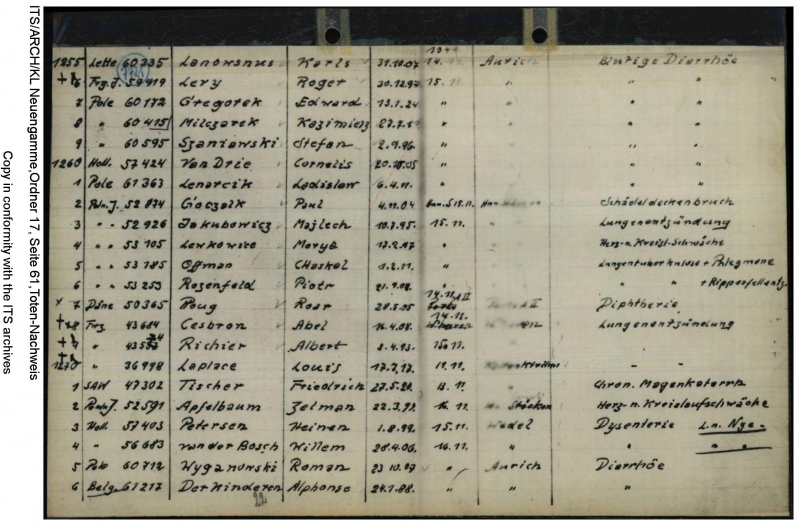 ITS/ARCH/KL Neuengamme, Ordner 17, Seite 61, Toten-Nachweis
Copy in conformity with the ITS archives
1944
1255 Lette 60335 Lanowsnus Karls 31.10.07 14. Aurich Blutige Diarrhöe
6 Frz.J. 59919 Levy Roger 30.12.97 15. 11. " " "
7 Pole 60172 Gregorek Edward 13.1.24 " " "
8 " 60415 Milczarek Kazimierz " " "
9 " 60595 Szaniawski Stefan 2.9.96. " " "
1260 Holl. 57424 Van Drie Cornelis " " "
1 Pole 61363 Lenarcik Ladislaw 6.4.11. " " "
2 Poln.J. 52874 Goczalk Paul 4.11.04 Schädeldeckenbruch
3 " " 52926 Jakubowicz Majlech 10.7.95. 15. 11. Lungenentzündung
4 " " 53105 Lewkowicz " Herz-u. Kreisl-Schwäche
5 " " 53185 Offman CHaskel 1.2.11. " Lungentuberkulose + Phlegmone
6 " " 53253 Rozenfeld Piotr " " " + Rippenfellentz.
7 Däne 50365 Poug Roar 28.5.05 14.11 Diphtherie
+ 8 Frz. 43684 Cesbron Abel 16.4.08. 14.11. Lungenentzündung
+ 9 " Richier Albert 2.4.93. 15. 11. " "
1270 " 36998 Laplace Louis 17.7.17. 11.11. " "
1 SAW 47302 Tischer Friedrich 27.5.20. 13. 11. " Chron. Magenkatarrh
2 Poln.J. 52591 Apfelbaum Zelman 22.3.97. 16. 11. Stöcken Herz-n. Kreislaufschwäche
3 Holl. 57403 Petersen Heinen 1.8.99. 15.11. Wedel Dysenterie L.n. Nga.
4 " 56683 van der Bosch Willem 28.4.06. 16.11. " " " "
5 Pole 60712 Wyganowski Roman 23 10.09 " Aurich Diarrhöe
6 Belg. 61217 Der Kinderen Alphonse 24.1.88. " " "